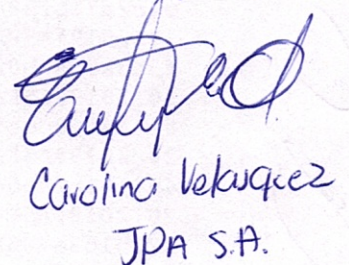 Carolina Velasquez
JPA S.A.